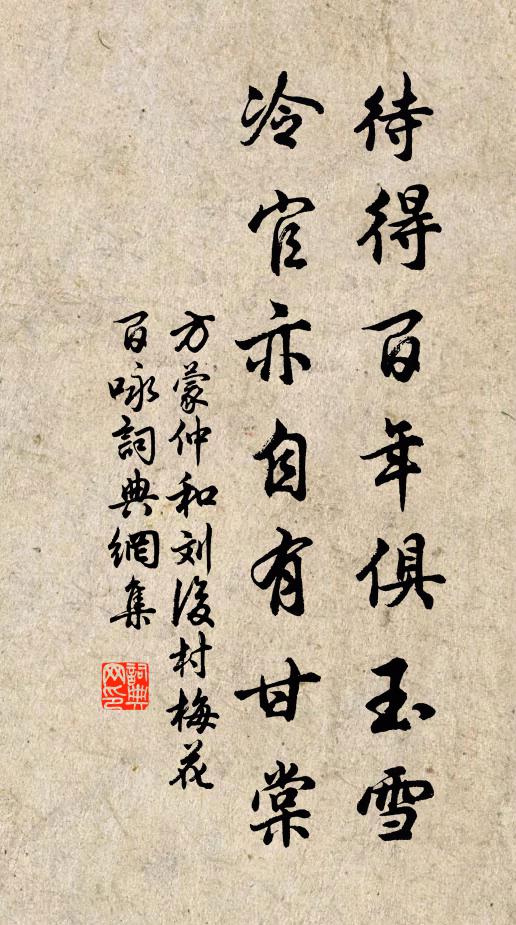 待得百年俱玉雪
冷官亦自有甘棠
方蒙仲和刘後村梅花
百咏詞典網集
詞典网印